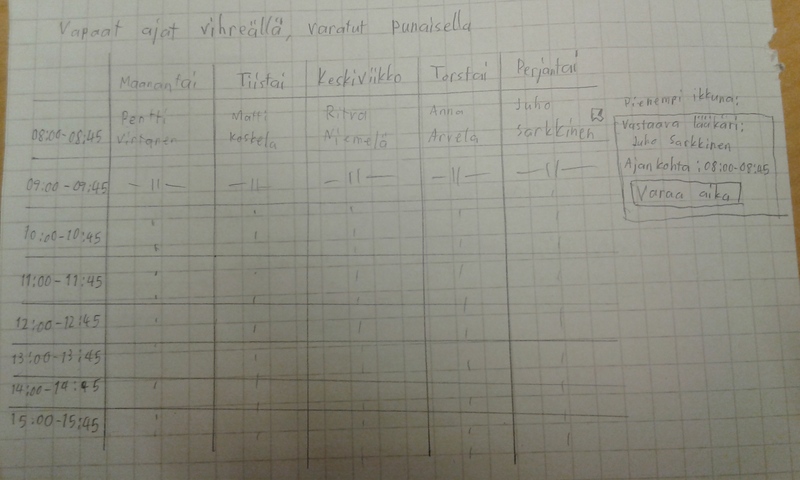 Vapaat ajat vihreällä, varatut punaisella
Maanantai Tiistai Keskiviikko Torstai Perjantai
08:00-08:45 Pentti Virtanen Matti Koskela Ritva Niemelä Anna Arvela Juho Sarkkinen
09:00-09:45 —11— —11— —11— —11— —11—
10:00-10:45
11:00-11:45
12:00-12:45
13:00-13:45
14:00-14:45
15:00-15:45
Pienempi ikkuna:
Vastaava lääkäri:
Juho Sarkkinen
Ajankohta: 08:00-08:45
Varaa aika